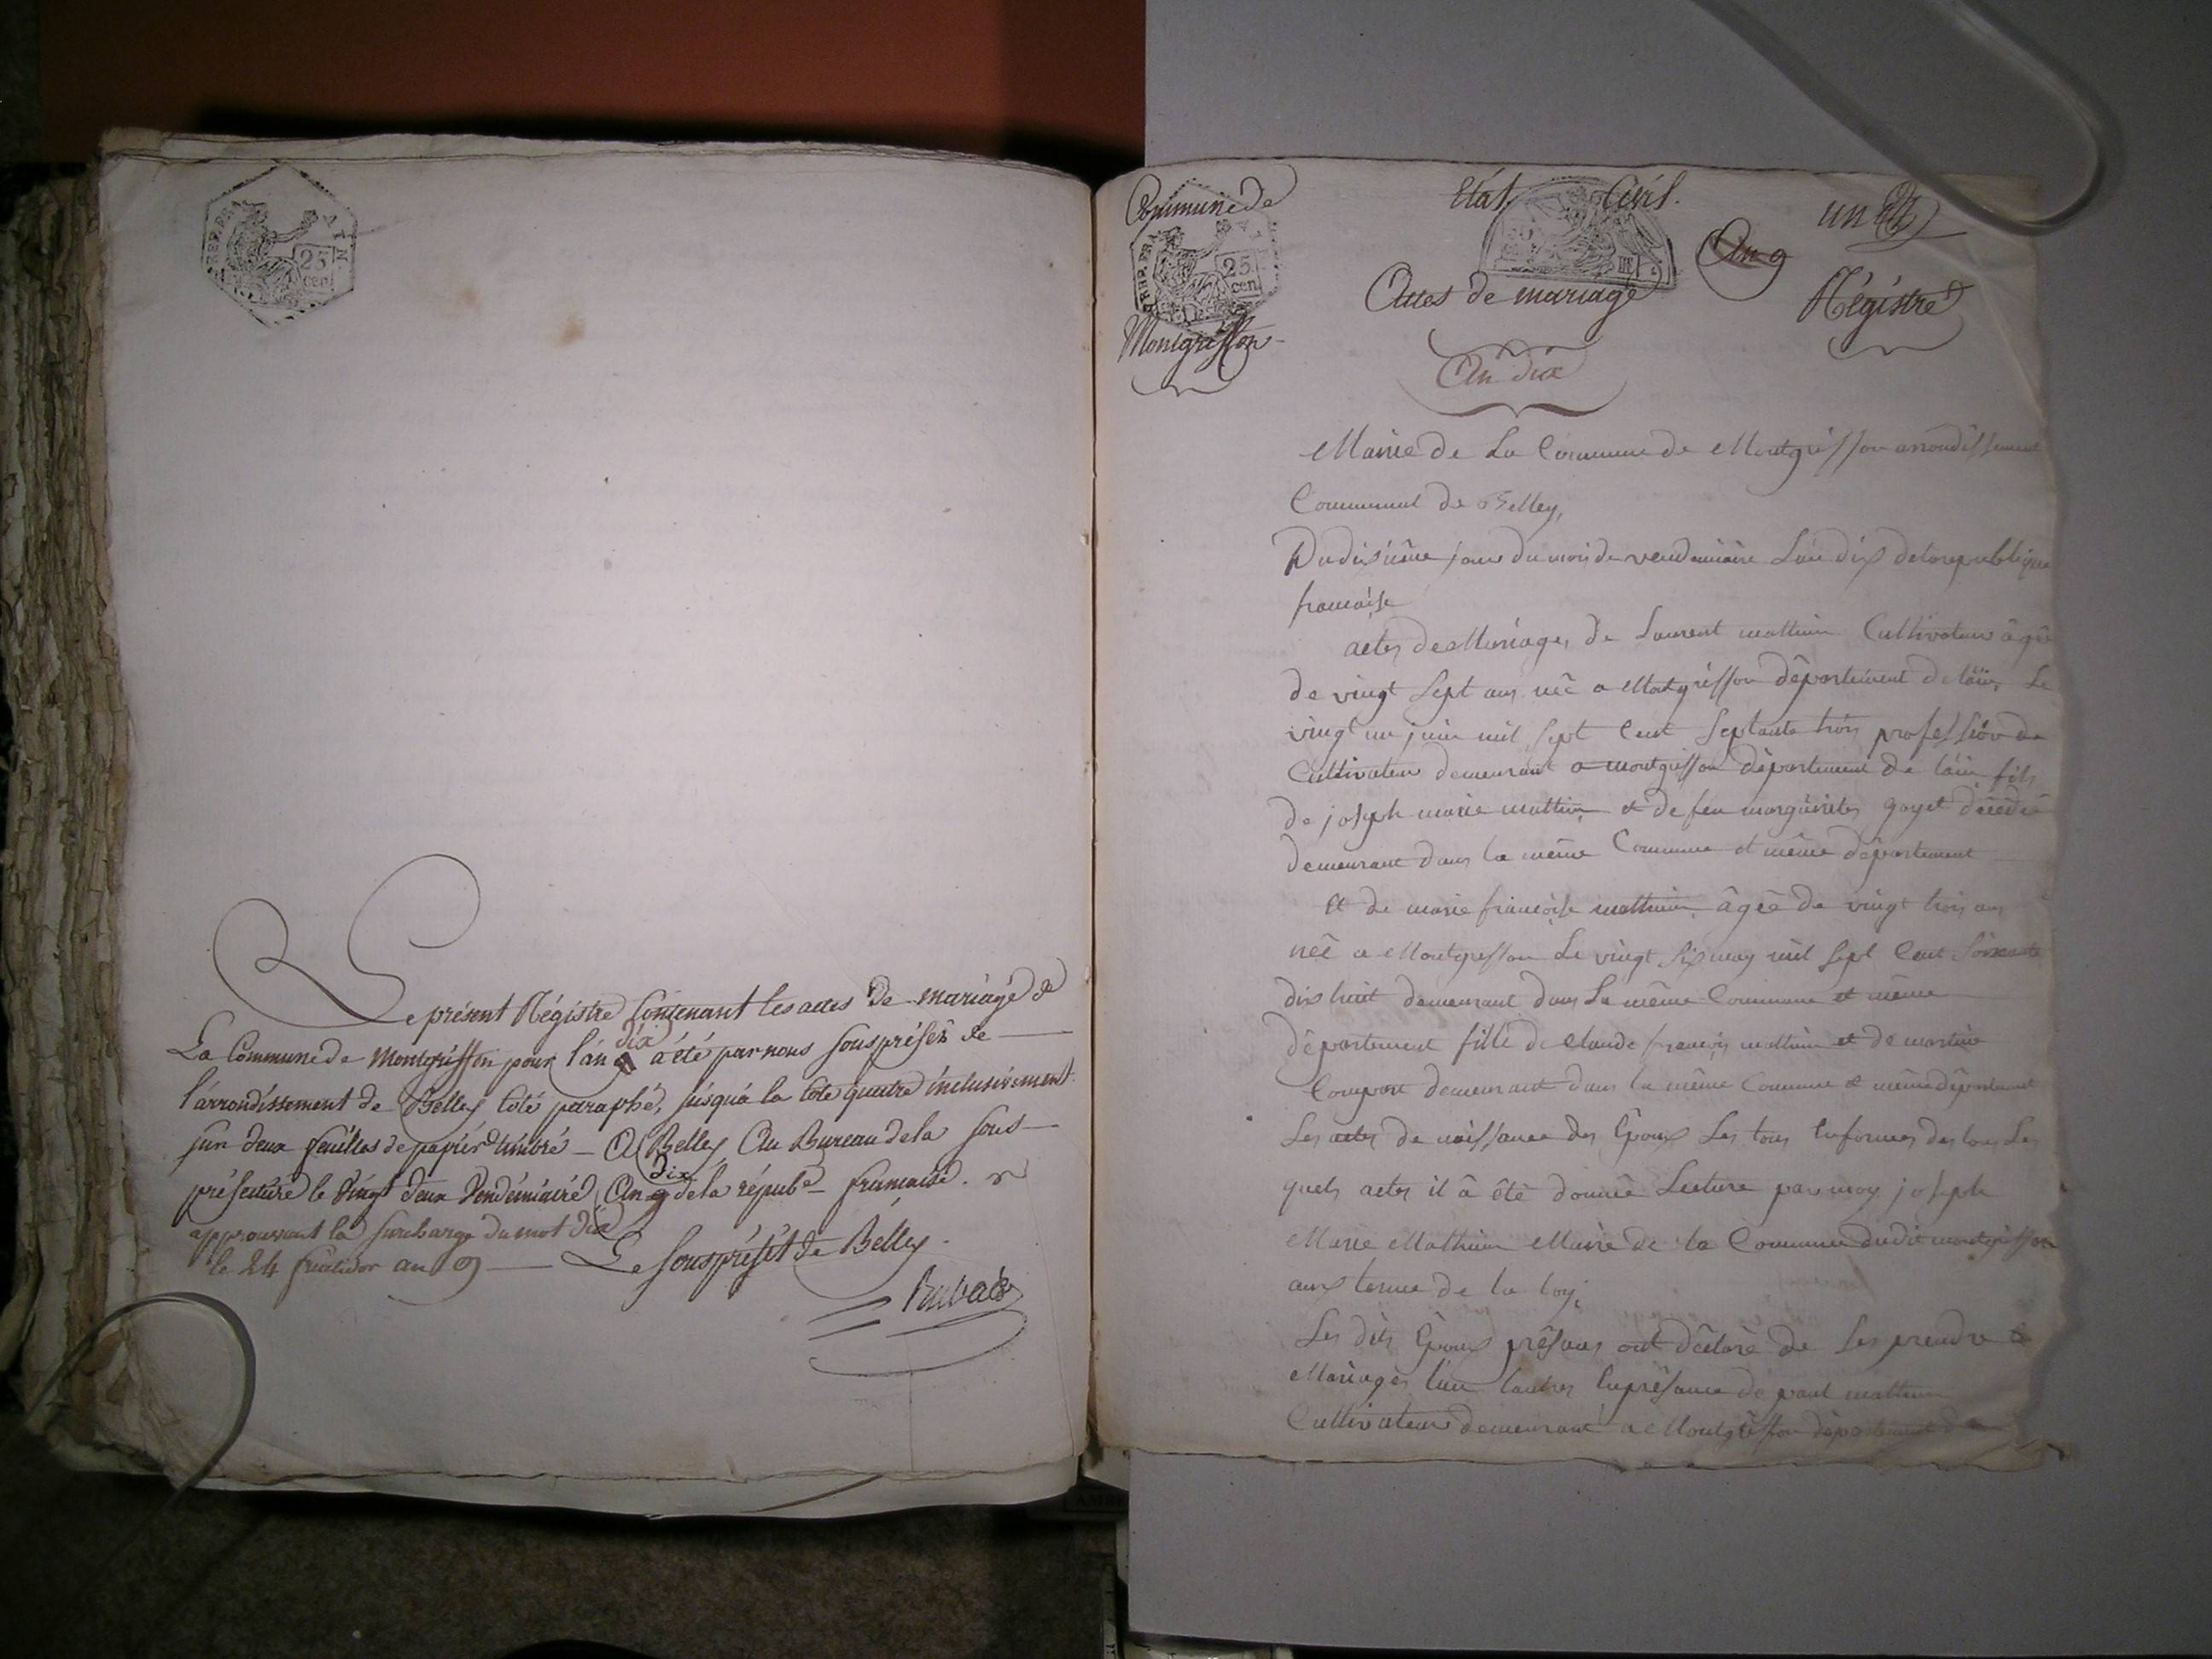 25
cen
Le présent Régistre Contenant les actes de mariage de
La Commune de Montgriffon pour l'an 9 dix a été par nous sous préfèt de
l'arrondissement de Belley Coté paraphé, jusqu'à la Cote quatre inclusivement
sur deux feuilles de papier timbré – A Belley Au Bureau de la sous
préfecture le Vingt deux Vendémiaire An 9 dix de la répub.e française.
approuvant la surcharge du mot dix
le 24 fructidor an 9 Le sous préfet de Belley.
Commune de
25
cen
Montgriffon
Etat Civil.
un
An 9
Actes de mariage
Régistre
An dix
Mairie de La Commune de Montgriffon arrondissement
Communal de Belley,
Du dixième jour du mois de vendemiaire L'an dix de la republique
francaise
actes de Mariages de Laurent mathieu Cultivateur âgé
de vingt Sept ans né a Montgriffon département de l'ain, Le
vingt un juin mil Sept Cent Septante trois profession de
Cultivateur demeurant a montgriffon département de l'ain fils
de joseph marie mathieu et de feu margueritte goyet décédée
demeurant dans la même Commune et même département
Et de marie françoise mathieu âgée de vingt trois ans
née a Montgriffon Le vingt Six may mil Sept Cent Soixante
dix huit demeurant dans La même Commune et même
département fille de Claude françois mathieu et de
demeurant dans la même Commune et même département
Les actes de naissance des Epoux Les tous Enformes des tous Les
quels actes il â été donnée Lecture par moy joseph
Marie Mathieu Maire de la Commune dudit montgriffon
aux terme de la loy,
Les dits Epoux présans ont déclaré de Ses prendre
Mariages l'un lautres Enprésance de paul mathieu
Cultivateur demeurant a Montgriffon département de